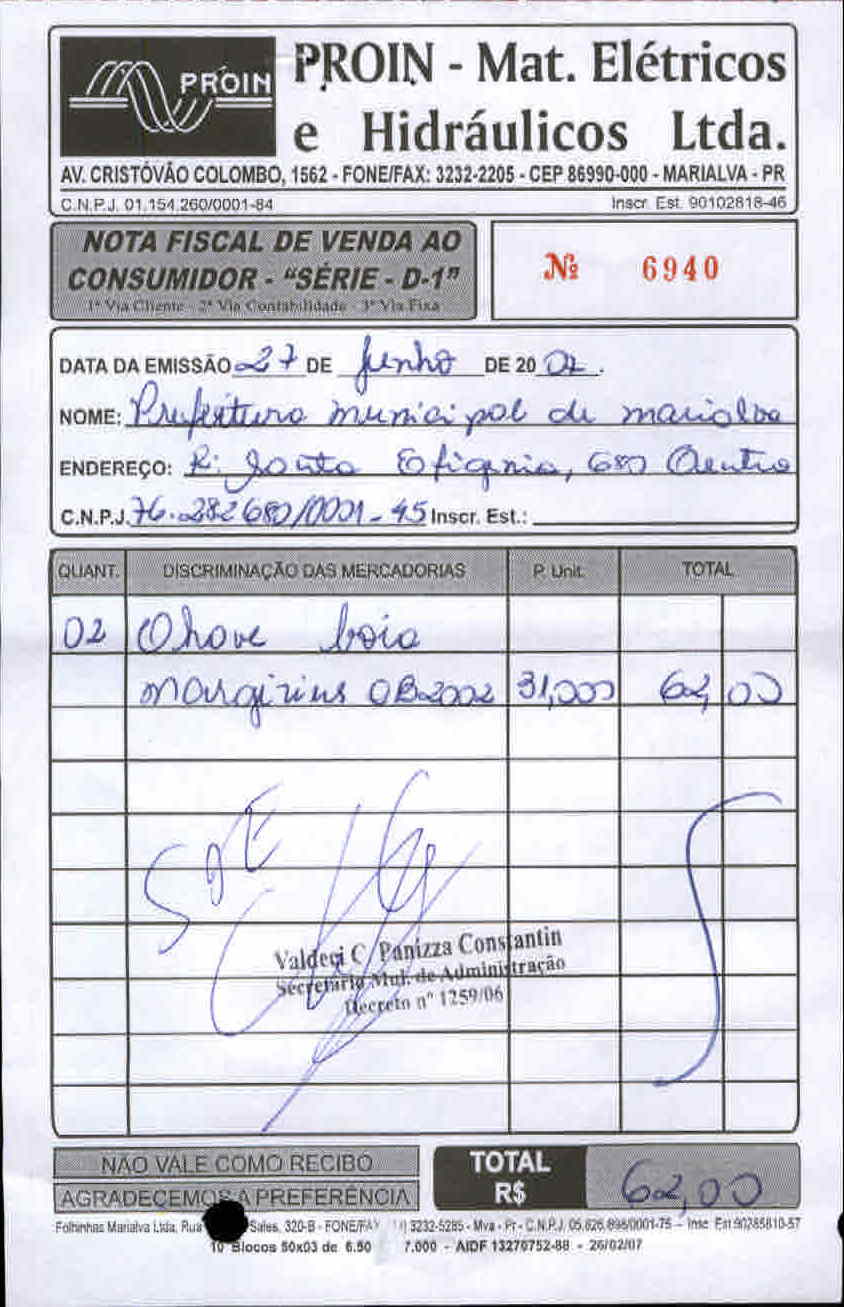 PROIN
PROIN - Mat. Elétricos
e Hidráulicos Ltda.
AV. CRISTÓVÃO COLOMBO, 1562 - FONE/FAX: 3232-2205 - CEP 86990-000 - MARIALVA - PR
C.N.P.J. 01.154.260/0001-84 Inscr. Est. 90102818-46
NOTA FISCAL DE VENDA AO
CONSUMIDOR - "SÉRIE - D-1"
1ª Via Cliente - 2ª Via Contabilidade - 3ª Via Fixa
Nº 6940
DATA DA EMISSÃO 27 DE Junho DE 20 07.
NOME: Prefeitura municipal de marialva
ENDEREÇO: R: Santa Efigenia, 680 Centro
C.N.P.J. 76.282680/0001-45 Inscr. Est.:
QUANT. DISCRIMINAÇÃO DAS MERCADORIAS P. Unit. TOTAL
02 Chave boia
margirius CB2002 31,000 62,00
Valdeci C. Panizza Constantin
Secretária Mul. de Administração
Decreto nº 1259/06
NÃO VALE COMO RECIBO
AGRADECEMOS A PREFERÊNCIA
TOTAL
R$ 62,00
Folhinhas Marialva Ltda, Rua Sales, 320-B - FONE/FAX 3232-5285 - Mva - Pr - C.N.P.J. 05.626.895/0001-75 - Insc. Est 90285810-57
10 Blocos 50x03 de 6.50 7.000 - AIDF 13270752-88 - 26/02/07